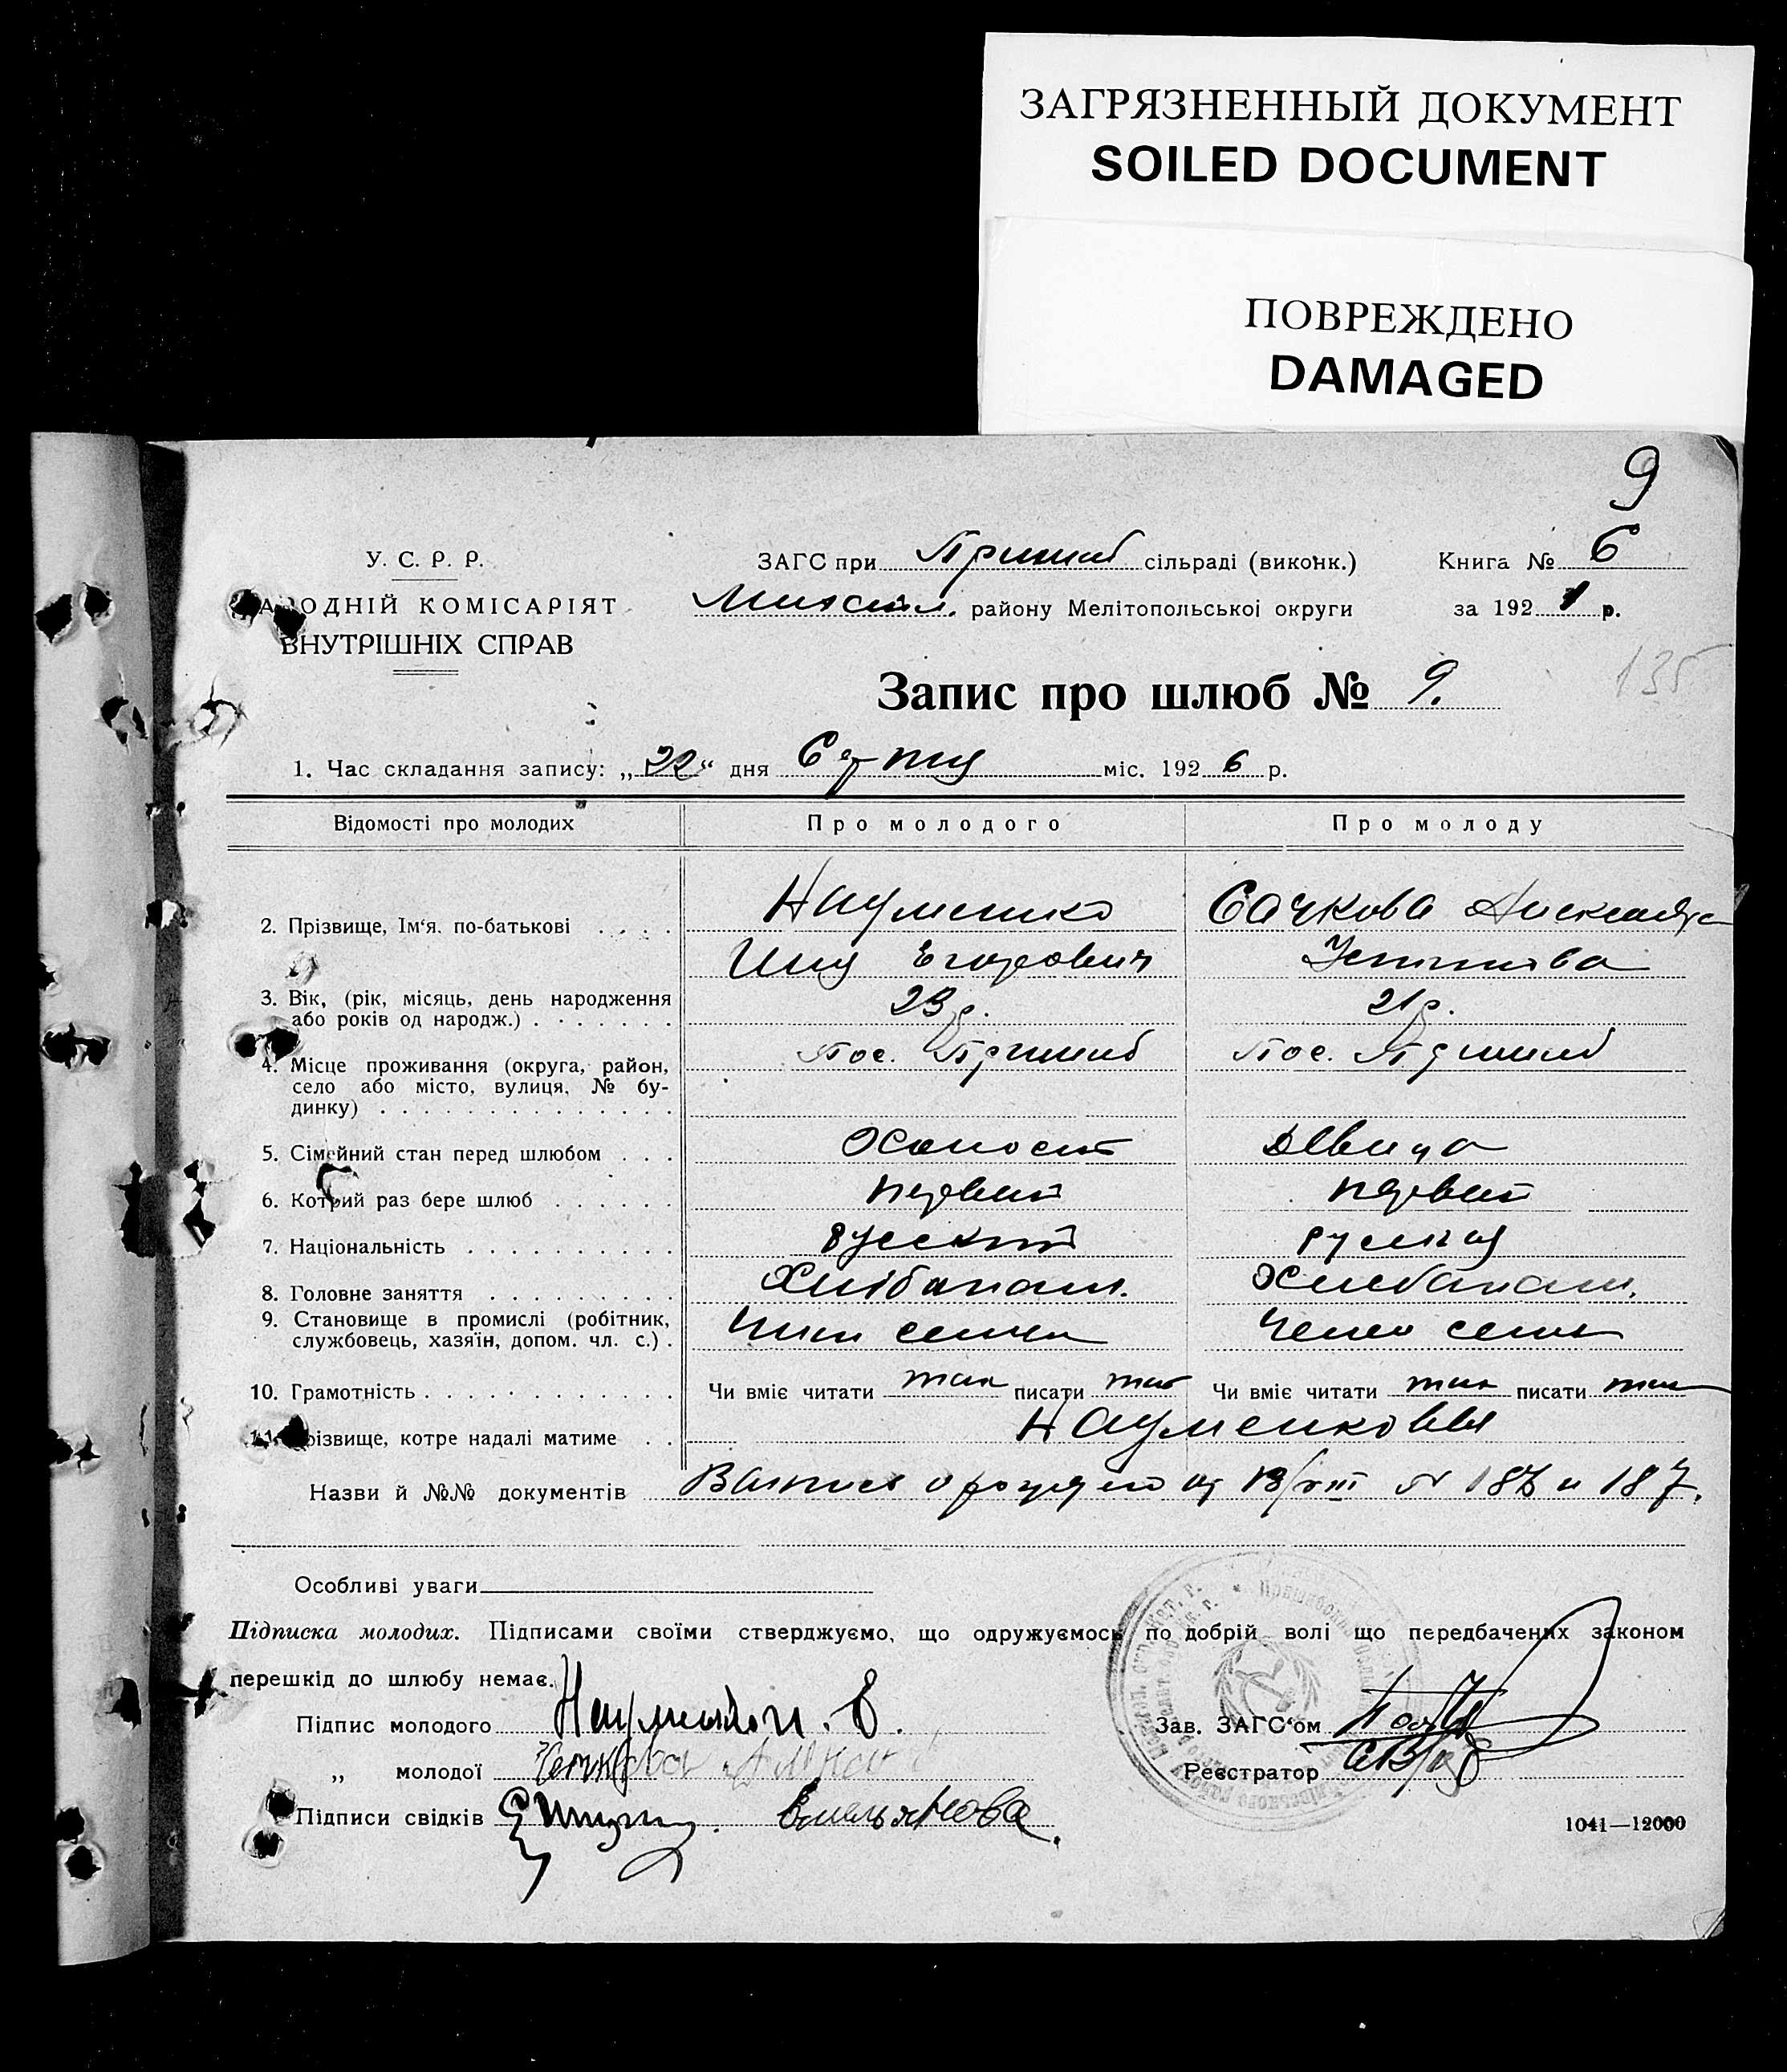 ЗАГРЯЗНЕННЫЙ ДОКУМЕНТ
SOILED DOCUMENT
ПОВРЕЖДЕНО
DAMAGED
9
У. С. Р. Р.
ЗАГС при Пришиб сільраді (виконк.)
Книга № 6
НАРОДНІЙ КОМІСАРІЯТ
Михайл. району Мелітопольської округи
за 192 р.
ВНУТРІШНІХ СПРАВ
135
Запис про шлюб № 9.
1. Час складання запису: „22“ дня міс. 1926 р.
Відомості про молодих
Про молодого
Про молоду
2. Прізвище, Ім'я, по-батькові . . . .
Науменко
Сачкова Александра
Егорович
3. Вік, (рік, місяць, день народження
або років од народж.) . . . . . . .
23 р.
21 р.
4. Місце проживання (округа, район,
село або місто, вулиця, № бу-
динку) . . . . . . . . . . . . . .
Пос. Пришиб
Пос. Пришиб
5. Сімейний стан перед шлюбом . . .
Холост
Девица
6. Котрий раз бере шлюб . . . . . .
первый
первый
7. Національність . . . . . . . . . .
русский
русская
8. Головне заняття . . . . . . . . .
Хлібопаш.
Хлебопаш.
9. Становище в промислі (робітник,
службовець, хазяїн, допом. чл. с.) .
Член семьи
Член семьи
10. Грамотність . . . . . . . . . . . .
Чи вміє читати так писати так
Чи вміє читати так писати так
11. Прізвище, котре надалі матиме . .
Науменковы
Назви й №№ документів
о рожден 13/VIII № 186 и 187.
Особливі уваги
Підписка молодих. Підписами своїми стверджуємо, що одружуємось по добрій волі що передбачених законом
перешкід до шлюбу немає.
Підпис молодого Науменко
Зав. ЗАГС'ом
„ молодої
Реєстратор
Підписи свідків Емельянова
1041—12000